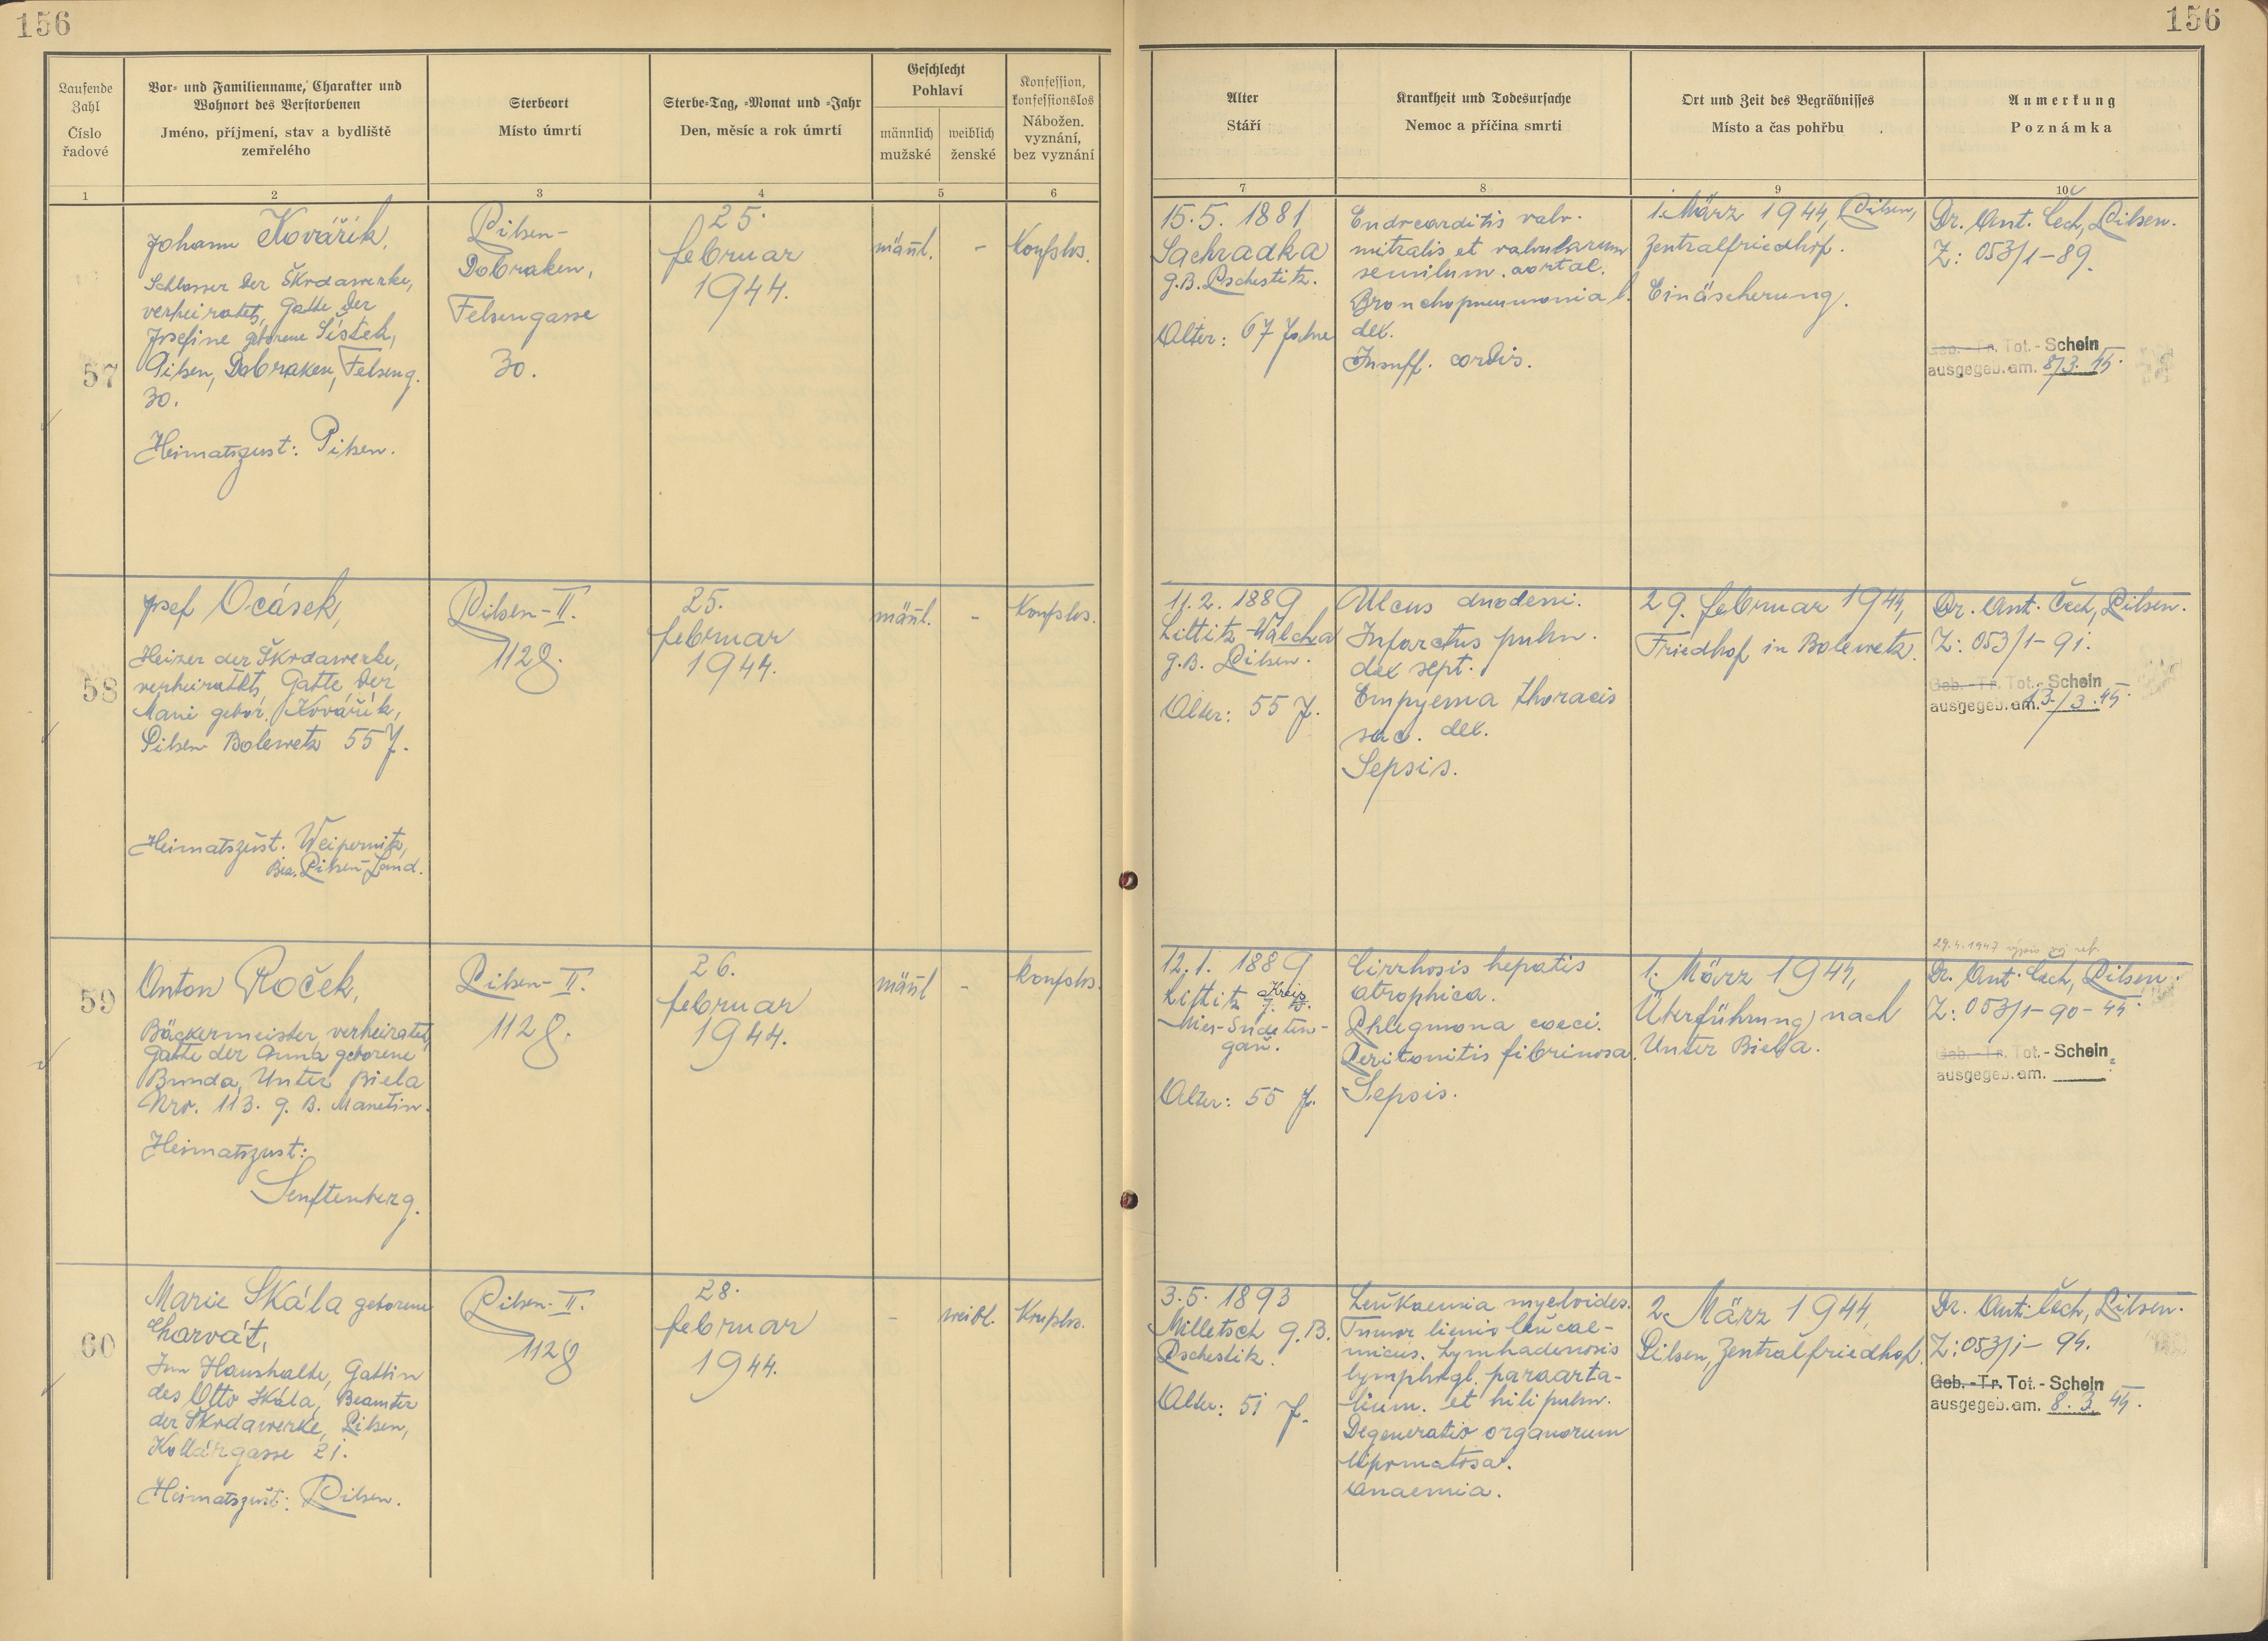 156
156
Laufende
Zahl
Číslo
řadové
Vor- und Familienname, Charakter und
Wohnort des Verstorbenen
Jméno, příjmení, stav a bydliště
zemřelého
Sterbeort
Místo úmrtí
Sterbe-Tag, -Monat und -Jahr
Den, měsíc a rok úmrtí
Geschlecht
Pohlaví
männlich
mužské
weiblich
ženské
Konfession,
konfessionslos
Nábožen.
vyznání,
bez vyznání
Alter
Stáří
Krankheit und Todesursache
Nemoc a příčina smrti
Ort und Zeit des Begräbnisses
Místo a čas pohřbu
Anmerkung
Poznámka
1
2
3
4
5
6
7
8
9
10
57
Johann Kovářík,
Schlosser der Škodawerke,
verheiratet, Gatte der
Josefine geborene Šístek,
Pilsen, Dobraken, Felseng.
30.
Heimatszust: Pilsen.
Pilsen-
Dobraken,
Felsengasse
30.
25.
februar
1944.
männl.
-
Konfslos.
15.5. 1881
Sachradka
g.B. Pschestitz.
Alter: 67 Jahre
Endocarditis valv.
mitralis et valvularum
semilum. aortal.
Bronchopneumonia l.
dex.
Insuff. cordis.
1. März 1944, Pilsen,
Zentralfriedhof.
Einäscherung.
Dr. Ant. Čech, Pilsen.
Z: 053/1-89.
Geb.-Tr. Tot.-Schein
ausgegeb. am. 8/3. 45.
58
Josef Ocásek,
Heizer der Škodawerke,
verheiratet, Gatte der
Marie gebor. Kovářík,
Pilsen Bolewetz 557.
Heimatszust. Weipernitz,
Bez. Pilsen-Land.
Pilsen-II.
1128.
25.
februar
1944.
männl.
-
Konfslos.
11.2. 1889
Littitz-Walcha
g.B. Pilsen.
Alter: 55 J.
Ulcus duodeni.
Infarctus pulm.
dex sept.
Empyema thoracis
sac. dex.
Sepsis.
29. februar 1944,
Friedhof in Bolewetz.
Dr. Ant. Čech, Pilsen.
Z: 053/1-91.
Geb.-Tr. Tot.-Schein
ausgegeb. am. 13./3. 45.
59
Anton Roček,
Bäckermeister, verheiratet,
Gatte der Anna geborene
Bunda, Unter Biela
Nro. 113. g. B. Manetin.
Heimatszust:
Senftenberg.
Pilsen-II.
1128.
26.
februar
1944.
männl
-
konfslos.
12.1. 1889
Littitz Kreis
Mies-Sudeten-
gau.
Alter: 55 J.
Cirrhosis hepatis
atrophica.
Phlegmona coeci.
Peritonitis fibrinosa.
Sepsis.
1. März 1944,
Überführung nach
Unter Biela.
29.4.1947 výpis
Dr. Ant. Čech, Pilsen.
Z: 053/1-90-44.
Geb.-Tr. Tot.-Schein
ausgegeb. am.
60
Marie Skála geborene
Charvát,
Im Haushalte, Gattin
des Otto Skála, Beamter
der Škodawerke, Pilsen,
Kollárgasse 21.
Heimatszust: Pilsen.
Pilsen-II.
1128
28.
februar
1944.
-
weibl.
Konfslos.
3.5. 1893
Milletsch g.B.
Pschestitz.
Alter: 51 J.
Leukaemia myeloides.
Tumor lienis leucae-
micus. Lymhadenosis
lymphogl. paraarta-
lium. et hili pulm.
Degeneratio organorum
lipomatosa.
Anaemia.
2. März 1944,
Pilsen, Zentralfriedhof.
Dr. Ant. Čech, Pilsen.
Z: 053/1-94.
Geb.-Tr. Tot.-Schein
ausgegeb. am. 8. 3. 45.